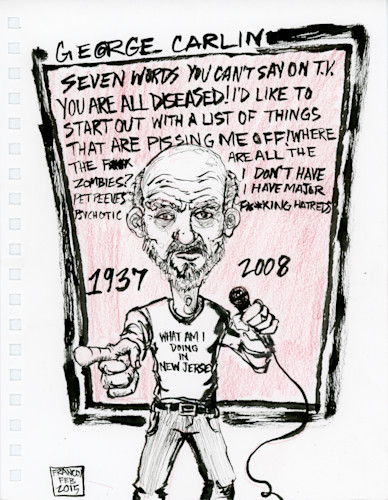 GEORGE CARLIN
SEVEN WORDS YOU CAN'T SAY ON T.V.
YOU ARE ALL DISEASED! I'D LIKE TO
START OUT WITH A LIST OF THINGS
THAT ARE PISSING ME OFF! WHERE
THE F*** ARE ALL THE
ZOMBIES? I DON'T HAVE
PET PEEVES I HAVE MAJOR
PSYCHOTIC F***KING HATREDS
1937 2008
WHAT AM I
DOING
IN
NEW JERSEY
FRANCO
FEB
2015